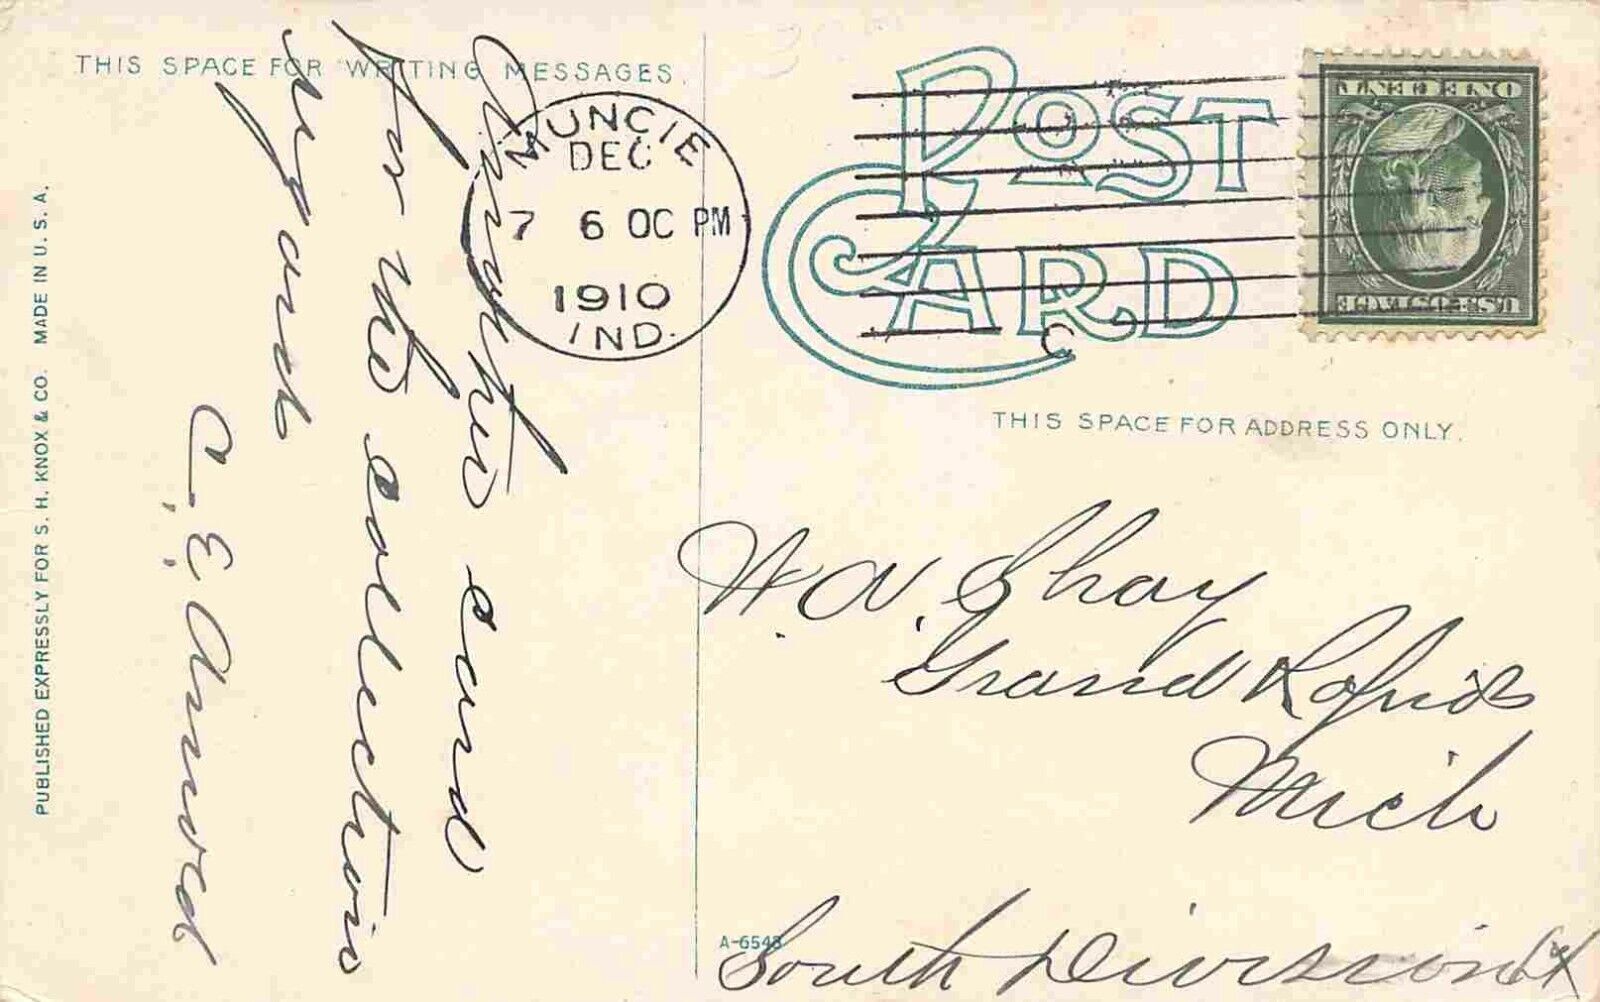 THIS SPACE FOR WRITING MESSAGES.
Another card
for the collection
regards
C. E. Atwood
PUBLISHED EXPRESSLY FOR S. H. KNOX & CO. MADE IN U. S. A.
MUNCIE
DEC
7 6 00 PM
1910
IND.
POST
CARD
ONE CENT
U.S. POSTAGE
THIS SPACE FOR ADDRESS ONLY.
Shay
Grand Rapids
Mich
A-6543
South Division St